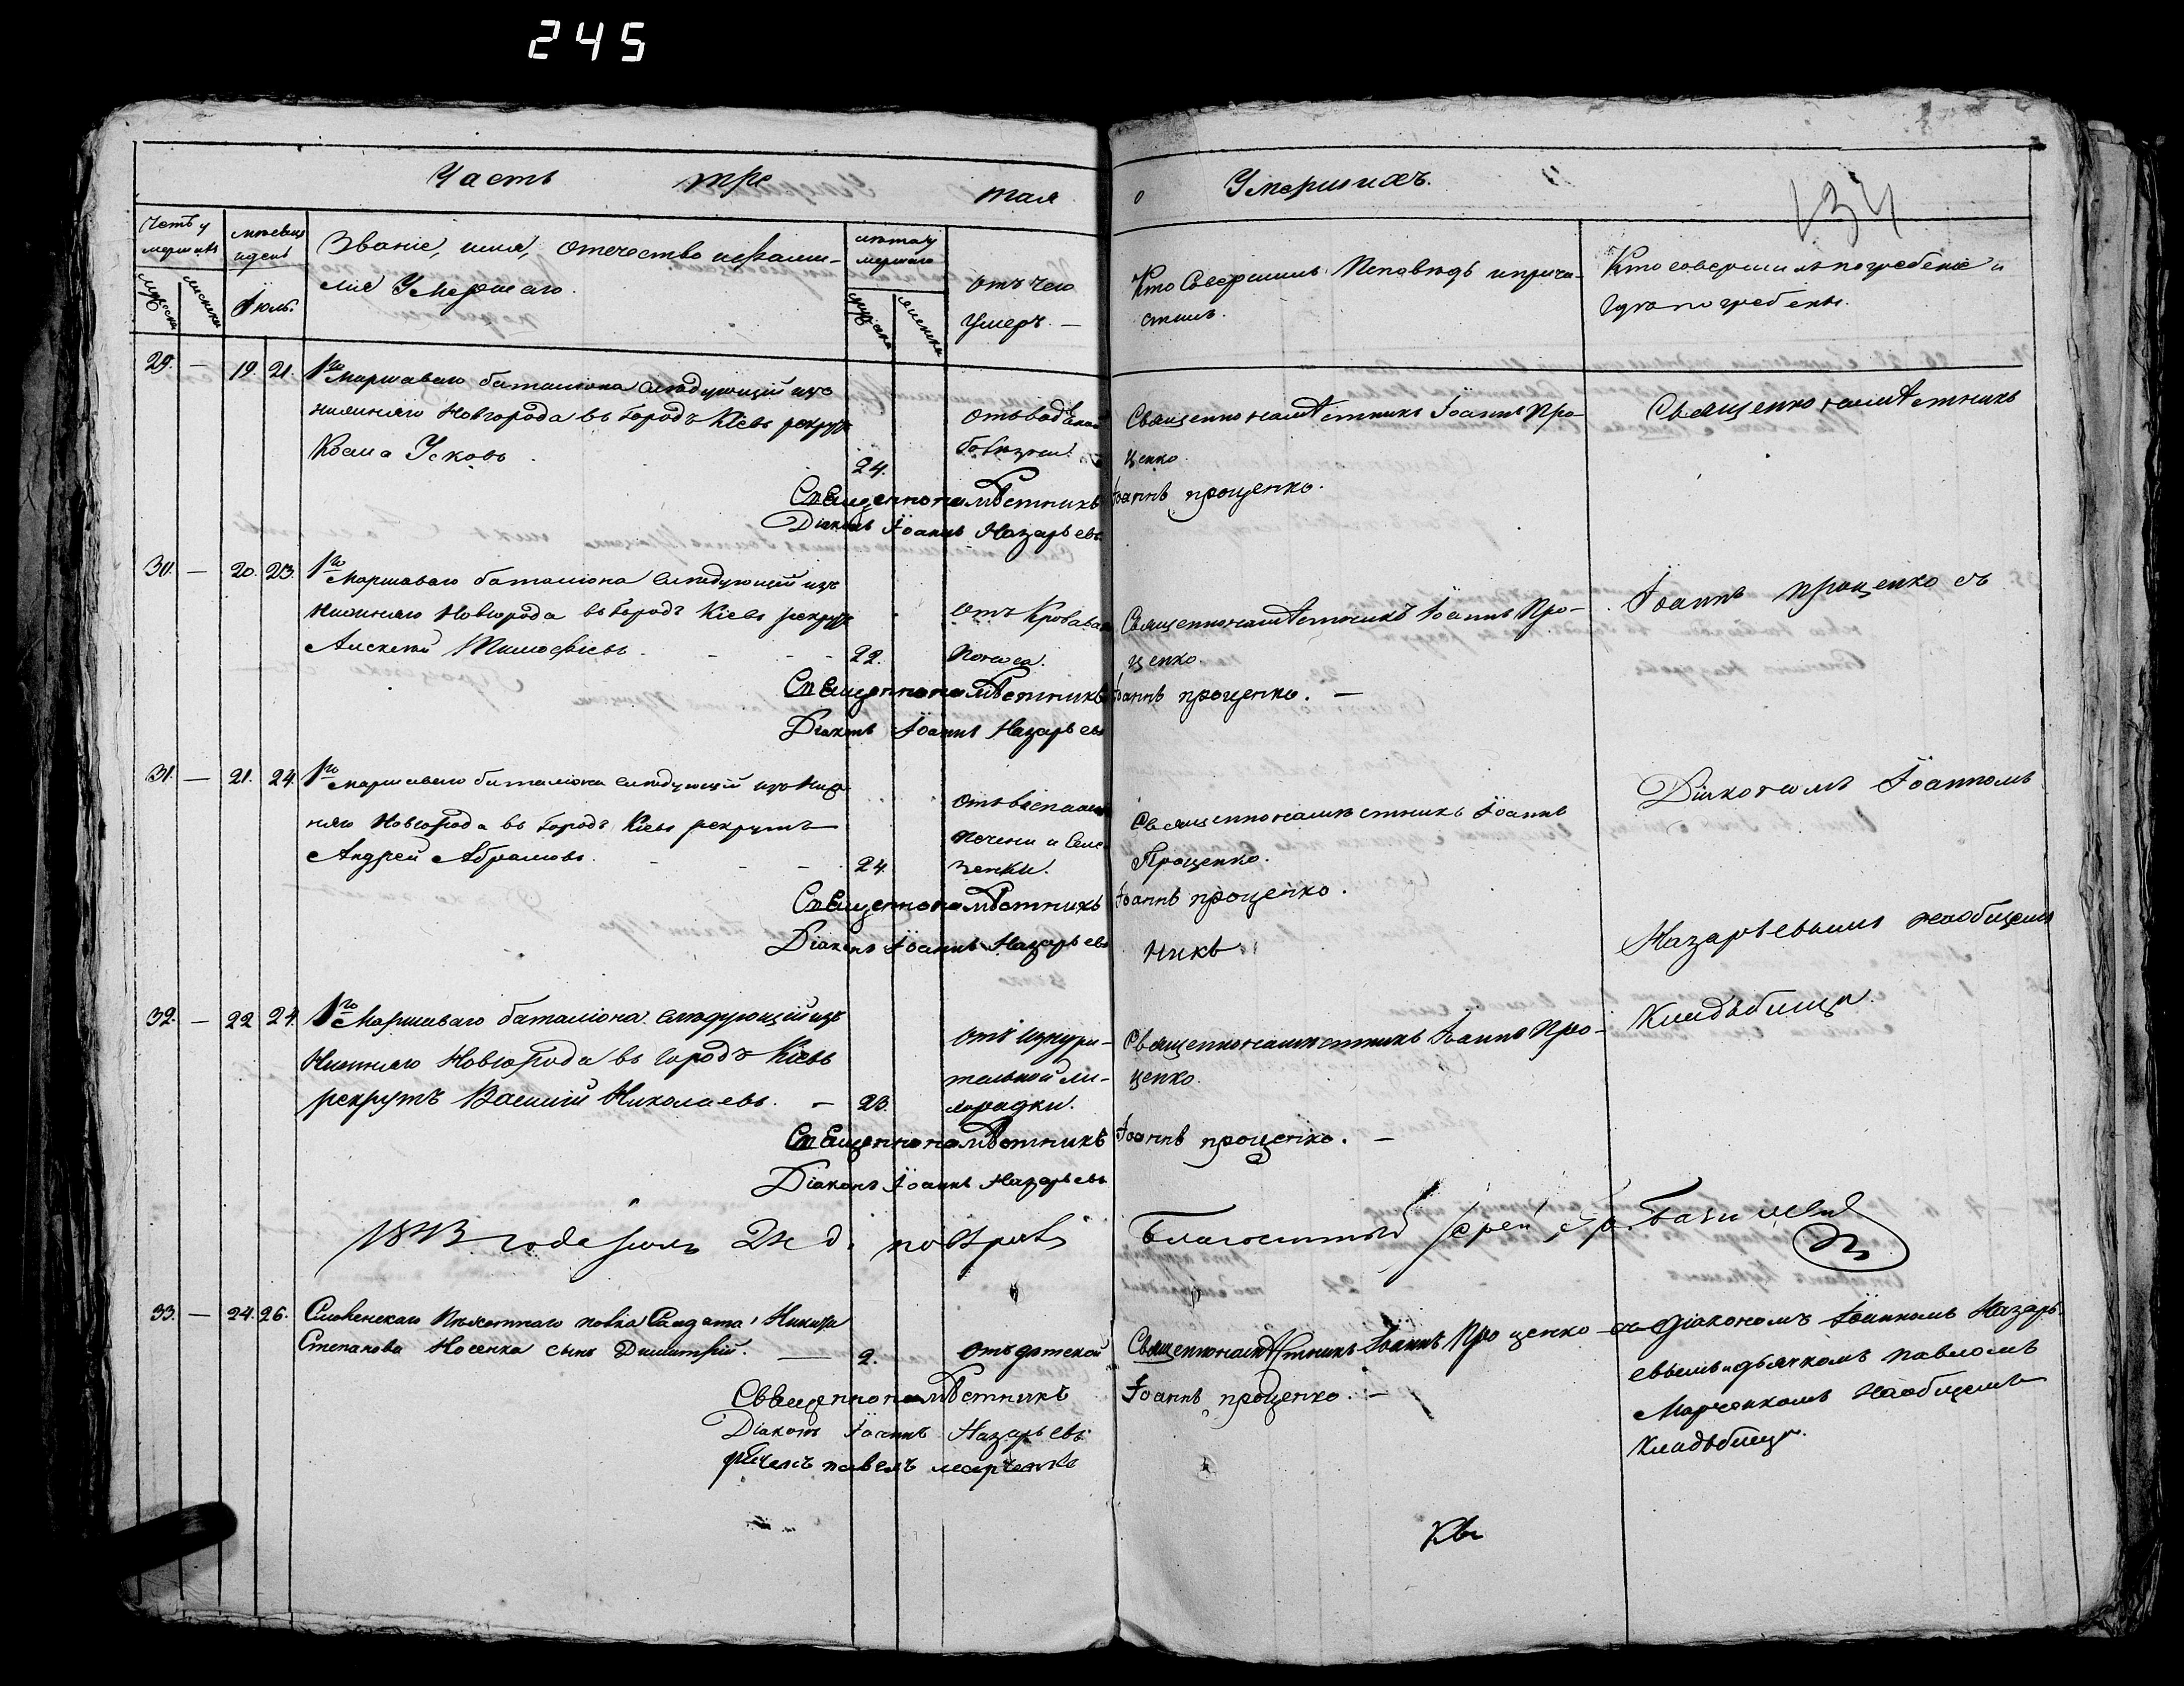 245
Часть тре
тая
о Умершихъ.
134
Счетъ умершихъ
мужеска
женска
мѣсяцъ и день
Іюль.
Званіе, имя, отечество и фами-
лія Умершаго.
лѣта умершаго
мужеска
женска
отъ чего
умеръ. —
Кто Совершилъ Исповѣдь и прича-
стилъ.
Кто совершилъ погребеніе и
гдѣ погребены.
29. — 19. 21. 1го Маршаваго баталіона слѣдующій изъ
нижняго Новгорода въ городъ Кіевъ рекрутъ
Козма Усковъ. 24.
отъ водяной
болѣзни.
Священнонамѣстникъ Іоаннъ Про-
ценко.
Священнонамѣстникъ
Священнонамѣстникъ Іоаннъ проценко.
Діаконъ Іоаннъ Назарьевъ
30. — 20. 23. 1го Маршаваго баталіона слѣдующій изъ
Нижняго Новгорода въ городъ Кіевъ рекрутъ
Алексѣй Тимофѣевъ. - - - 22.
отъ Кроваваго
поноса.
Священнонамѣстникъ Іоаннъ Про-
ценко.
Іоаннъ проценко съ
Священнонамѣстникъ Іоаннъ проценко. —
Діаконъ Іоаннъ Назарьевъ
31. — 21. 24. 1го маршаваго баталіона слѣдующій изъ Ниж
няго Новгорода въ городъ Кіевъ рекрутъ
Андрей Абрамовъ. - - - 24.
отъ воспаленія
печени и Селе
зенки.
Священнонамѣстникъ Іоаннъ
Проценко.
Діакономъ Іоанномъ
Священнонамѣстникъ Іоаннъ проценко.
Діаконъ Іоаннъ Назарьевъ
никъ
Назарьевымъ на общемъ
32. — 22. 24. 1го Маршаваго баталіона слѣдующій изъ
Нижняго Новгорода въ городъ Кіевъ
рекрутъ Василій Николаевъ. — 23.
отъ изнури-
тельной ли-
хорадки.
Священнонамѣстникъ Іоаннъ Про-
ценко.
Кладьбищѣ.
Священнонамѣстникъ Іоаннъ проценко. —
Діаконъ Іоаннъ Назарьевъ
1843 года Іюль д. повѣрялъ Благочинный Іерей
33. — 24. 26. Пѣхотнаго полка Салдата Никиты
Степанова Носенка сынъ Димитрій. — 2.
отъ дѣтской
Священнонамѣстникъ Іоаннъ Проценко съ діакономъ Іоанномъ Назарь
евымъ и дьячкомъ павломъ
Марченкомъ На общемъ
Кладьбищѣ.
Священнонамѣстникъ Іоаннъ проценко. —
Діаконъ Іоаннъ Назарьевъ
дьячекъ павелъ марченко